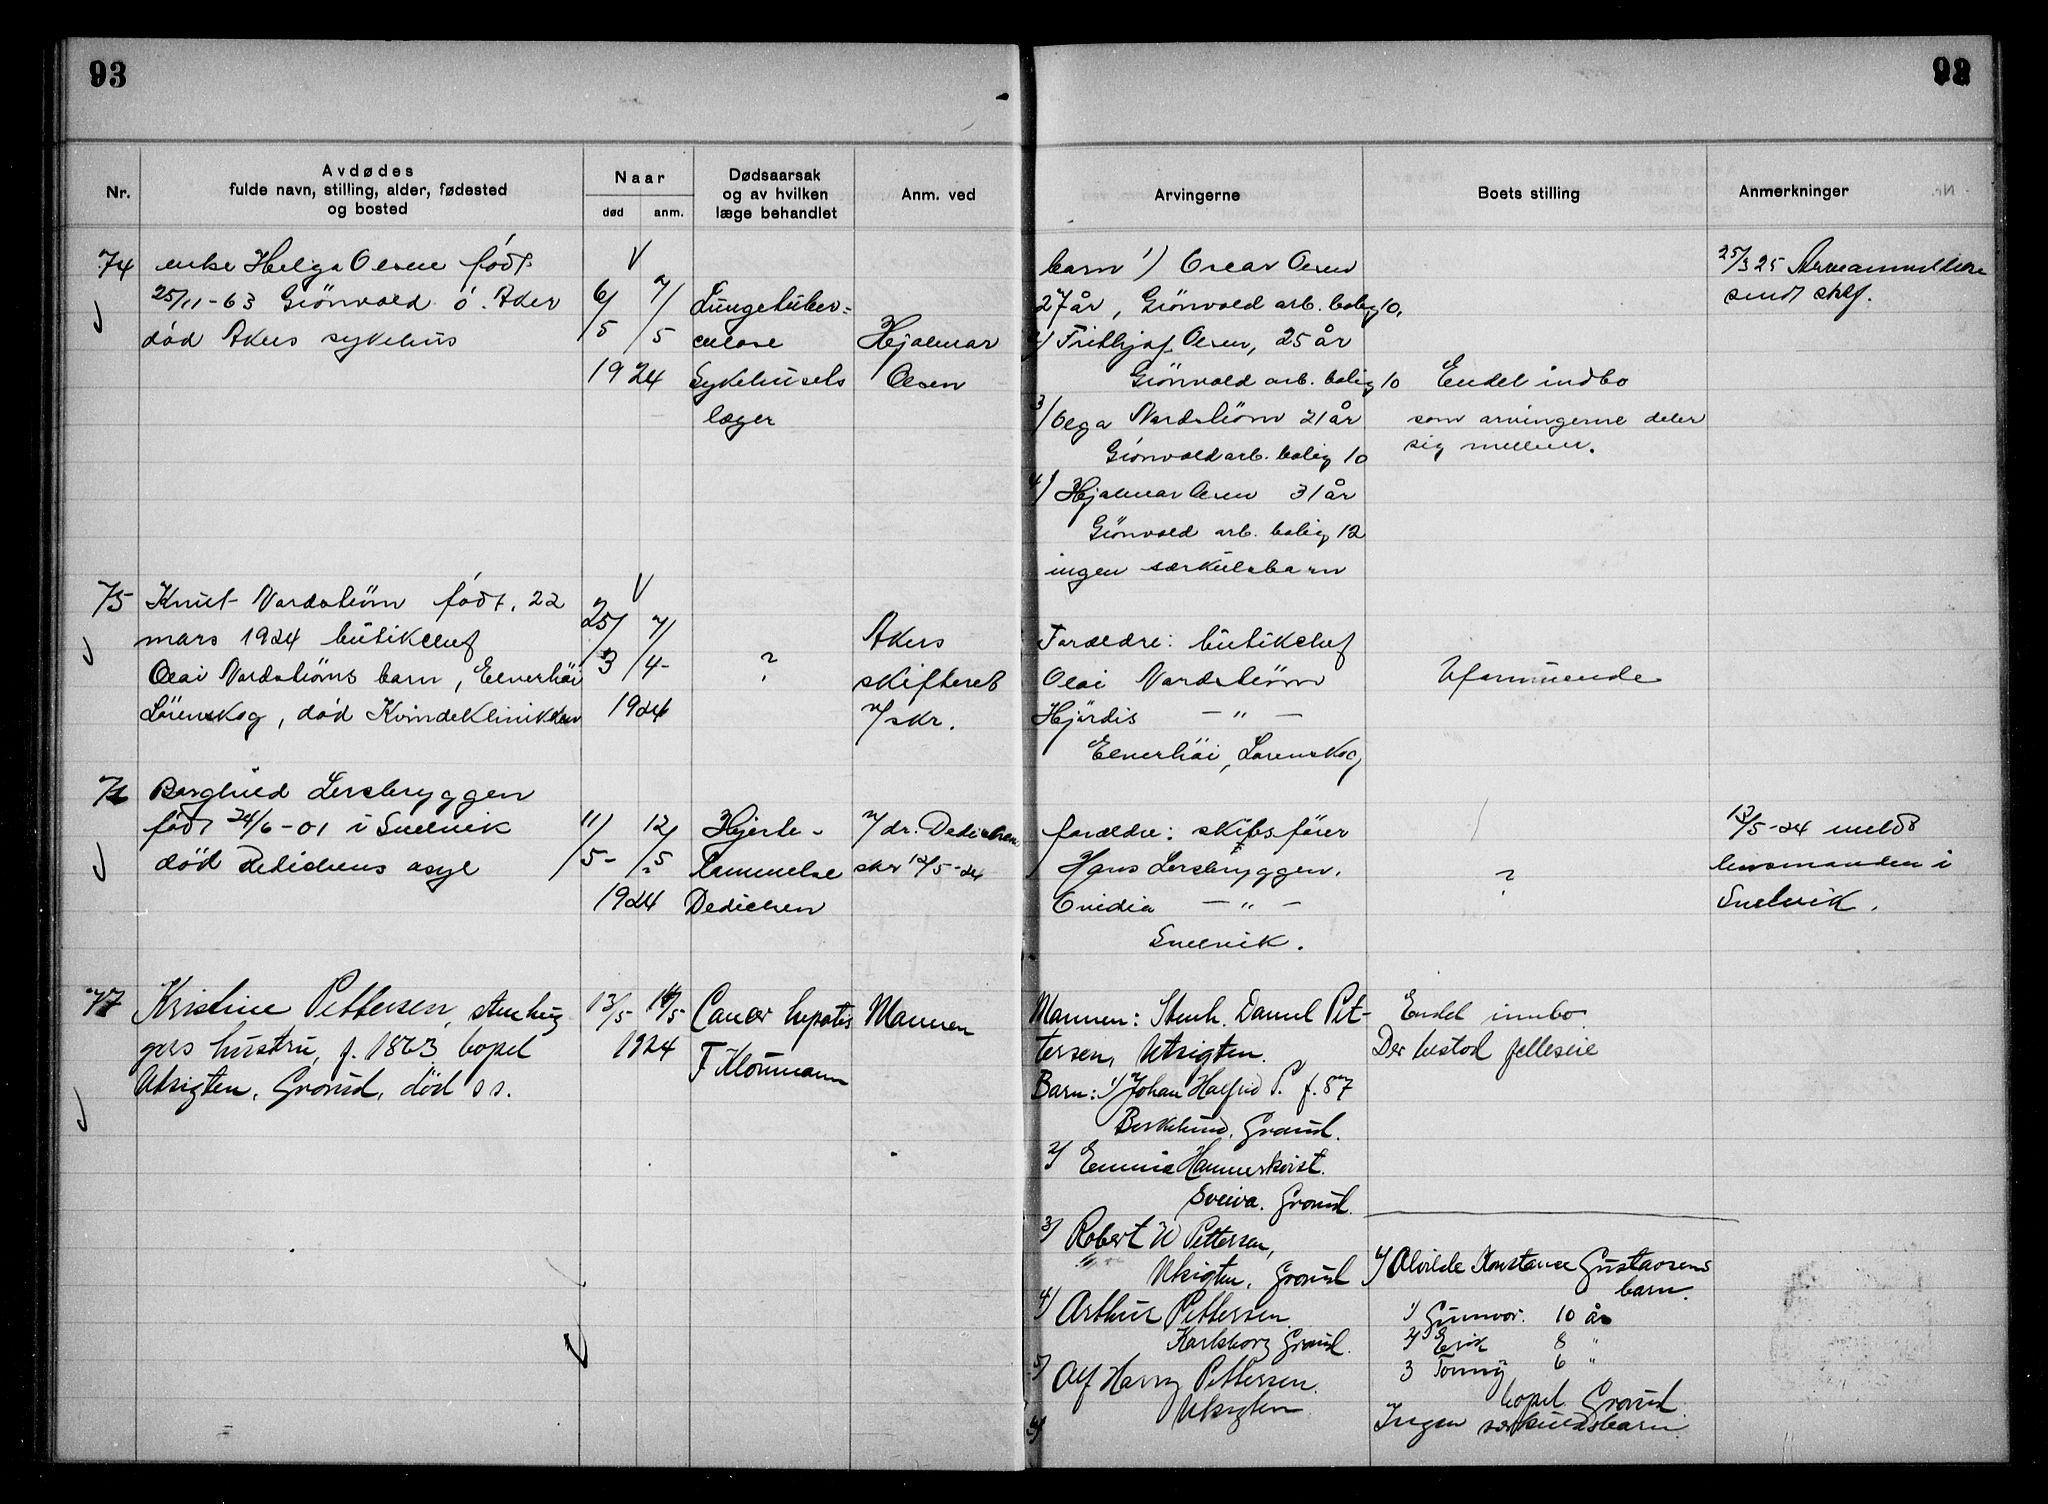 93
93
Nr.
Avdødes
fulde navn, stilling, alder, fødested
og bosted
Naar
død
anm.
Dødsaarsak
og av hvilken
læge behandlet
Anm. ved
Arvingerne
Boets stilling
Anmerkninger
74
enke Helga Olsen født
25/11-63 Grönvold ö. Aker
död Akers sykehus
6/5 7/5
1924
Lungetuber=
culose
Sykehusets
læger
Hjalmar
Olsen
barn 1) Oscar Olsen
27 år, Grönvold arb. bolig 10,
2) Fridthjof Olsen, 25 år
Grönvold arb. bolig 10
3) Olga Nordström 21 år
Grönvold arb. bolig 10
4) Hjalmar Olsen 31 år
Grönvold arb. bolig 12
ingen særkulsbarn
Endel indbo
som arvingerne deler
sig mellem.
25/3 25 Arveanmeldelse
sendt skf.
75
Knut Nordström født. 22
mars 1924 butikchef
Olai Nordströms barn, Elverhöi
Lörenskog, död Kvindeklinikken
25/3 7/4
1924
?
Akers
skifteret
v/skr.
Forældre: butikchef
Olai Nordström
Hjördis — " —
Elverhöi, Lørenskog
Uformuende
76
Borghild Lersbryggen
født 24/6-01 i Svelvik
död Dedichens asyl
11/5- 12/5
1924
Hjerte-
lammelse
Dedichen
v/ dr. Dedichen
skr 12/5-24
forældre: skibsfører
Hans Lersbryggen.
Ovidia — " —
Svelvik.
?
13/5-24 meldt
lensmanden i
Svelvik.
77
Kristine Pettersen, stenhug
gers hustru, f. 1863, bopel
Utsigten, Grorud, död s s.
13/5 14/5
1924
Cancer hepatis
F Kloumann
Mannen
Mannen: Stenh. Daniel Pet-
tersen, Utsigten.
Barn: 1) Johan Halfrid P. f. 87
Birkelund, Grorud.
2) Emmie Hammerkvist.
Sveiva. Grorud.
3) Robert W Pettersen,
Utsigten, Grorud
4) Arthur Pettersen.
Karlsborg Grorud.
5) Alf Harry Pettersen.
Utsigten
Endel innbo.
Der bestod felleseie
6) Alvilde Konstanse Gustavsens
barn.
1) Gunvor. 10 år
2) Erik 8 "
3 Tonny 6 "
bopel Grorud
Ingen særkuldsbarn.